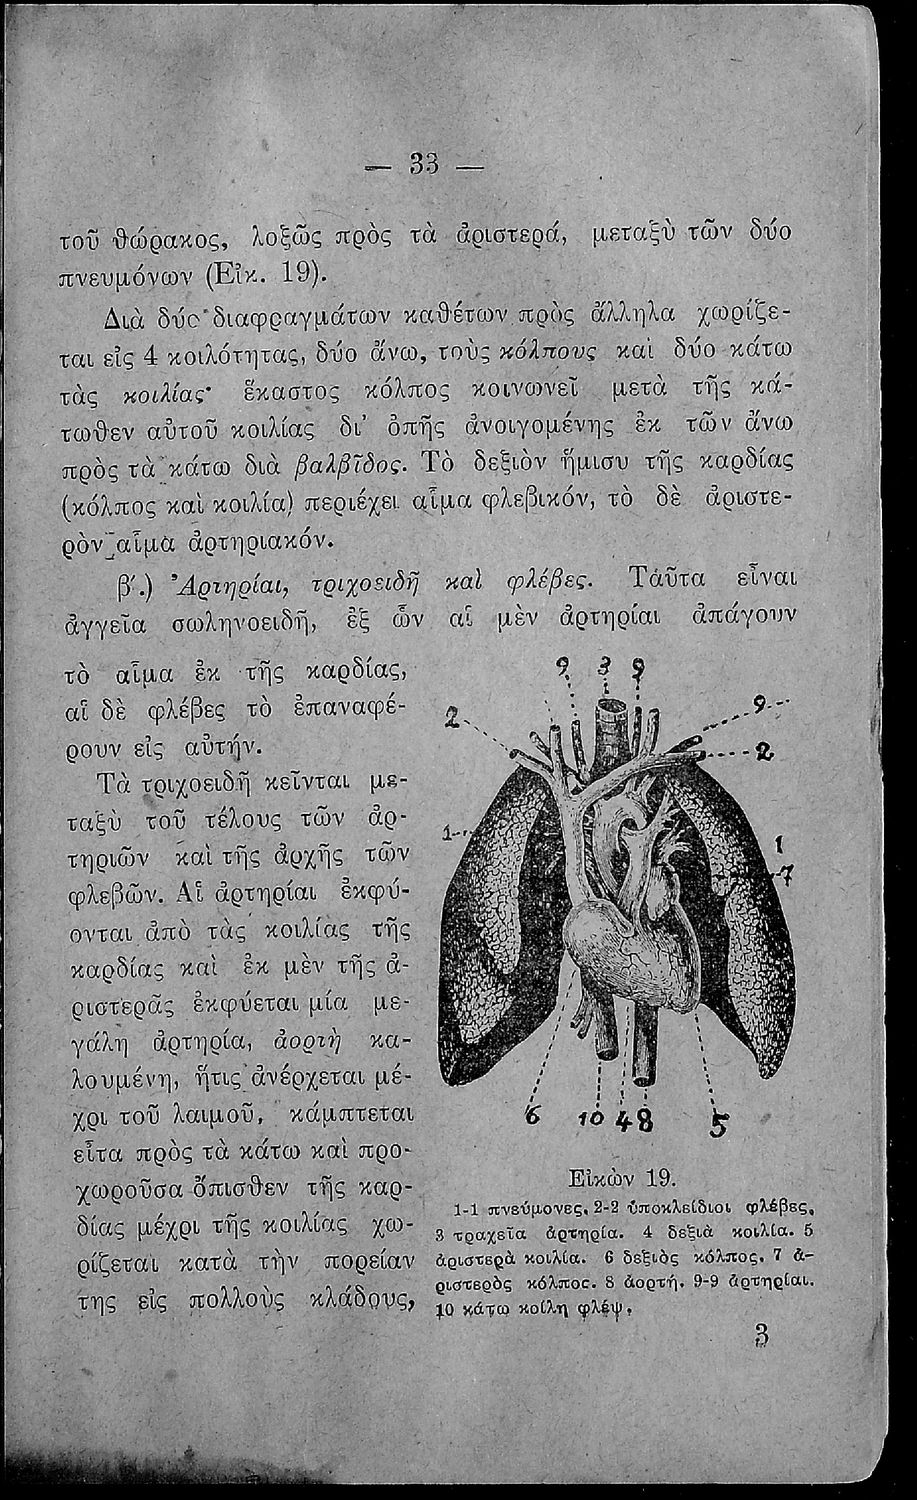 — 33 —
τοῦ θώρακος, λοξῶς πρὸς τὰ ἀριστερά, μεταξὺ τῶν δύο
πνευμόνων (Εἰκ. 19).
Διὰ δύο διαφραγμάτων καθέτων πρὸς ἄλληλα χωρίζε-
ται εἰς 4 κοιλότητας, δύο ἄνω, τοὺς κόλπους καὶ δύο κάτω
τὰς κοιλίας· ἕκαστος κόλπος κοινωνεῖ μετὰ τῆς κά-
τωθεν αὐτοῦ κοιλίας δι’ ὀπῆς ἀνοιγομένης ἐκ τῶν ἄνω
πρὸς τὰ κάτω διὰ βαλβῖδος. Τὸ δεξιὸν ἥμισυ τῆς καρδίας
(κόλπος καὶ κοιλία) περιέχει αἷμα φλεβικόν, τὸ δὲ ἀριστε-
ρὸν αἷμα ἀρτηριακόν.
β′.) Ἀρτηρίαι, τριχοειδῆ καὶ φλέβες. Ταῦτα εἶναι
ἀγγεῖα σωληνοειδῆ, ἐξ ὧν αἱ μὲν ἀρτηρίαι ἀπάγουν
τὸ αἷμα ἐκ τῆς καρδίας,
αἱ δὲ φλέβες τὸ ἐπαναφέ-
ρουν εἰς αὐτήν.
Τὰ τριχοειδῆ κεῖνται με-
ταξὺ τοῦ τέλους τῶν ἀρ-
τηριῶν καὶ τῆς ἀρχῆς τῶν
φλεβῶν. Αἱ ἀρτηρίαι ἐκφύ-
ονται ἀπὸ τὰς κοιλίας τῆς
καρδίας καὶ ἐκ μὲν τῆς ἀ-
ριστερᾶς ἐκφύεται μία με-
γάλη ἀρτηρία, ἀορτὴ κα-
λουμένη, ἥτις ἀνέρχεται μέ-
χρι τοῦ λαιμοῦ, κάμπτεται
εἶτα πρὸς τὰ κάτω καὶ προ-
χωροῦσα ὄπισθεν τῆς καρ-
δίας μέχρι τῆς κοιλίας χω-
ρίζεται κατὰ τὴν πορείαν
της εἰς πολλοὺς κλάδους,
9 3 9
2 9
2
1 1
7
6 10 4 8 5
Εἰκὼν 19.
1-1 πνεύμονες. 2-2 ὑποκλείδιοι φλέβες,
3 τραχεῖα ἀρτηρία. 4 δεξιὰ κοιλία. 5
ἀριστερὰ κοιλία. 6 δεξιὸς κόλπος. 7 ἀ-
ριστερὸς κόλπος. 8 ἀορτή. 9-9 ἀρτηρίαι.
10 κάτω κοίλη φλέψ.
3